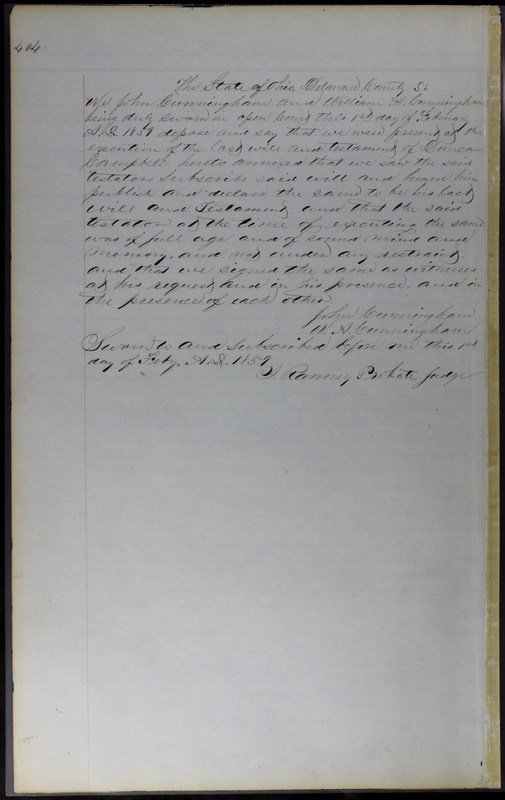 404
The State of Ohio Delaware County Ss
We John Cunningham and William A. Cunningham
being duly sworn in open Court this 1st day of February
A.D. 1859 depose and say that we were present at the
execution of the last will and testament of Duncan
Campbell hereto annexed that we saw the said
testator subscribe said will and heard him
publish and declare the same to be his last
will and Testament and that the said
testator at the time of executing the same
was of full age and of sound mind and
memory, and not under any restraint
and that we signed the same as witnesses
at his request and in his presence, and in
the presence of each other.
John Cunningham
W. A. Cunningham
Sworn to and subscribed before me this 1st
day of Feby. A.D. 1859
Ranney Probate Judge